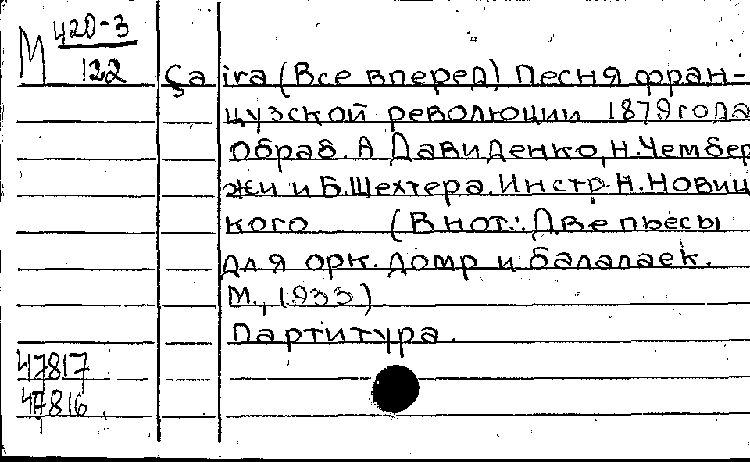 М 420-3
122
Ça ira (Все вперед) Песня фран-
цузской революции 1879 года
Обраб. А. Давиденко, Н. Чембер
жи и Б. Шехтера. Инстр. Н. Новиц
кого (В нот.: Две пьесы
для орк. домр и балалаек.
М., 1933)
Партитура.
47817
47816